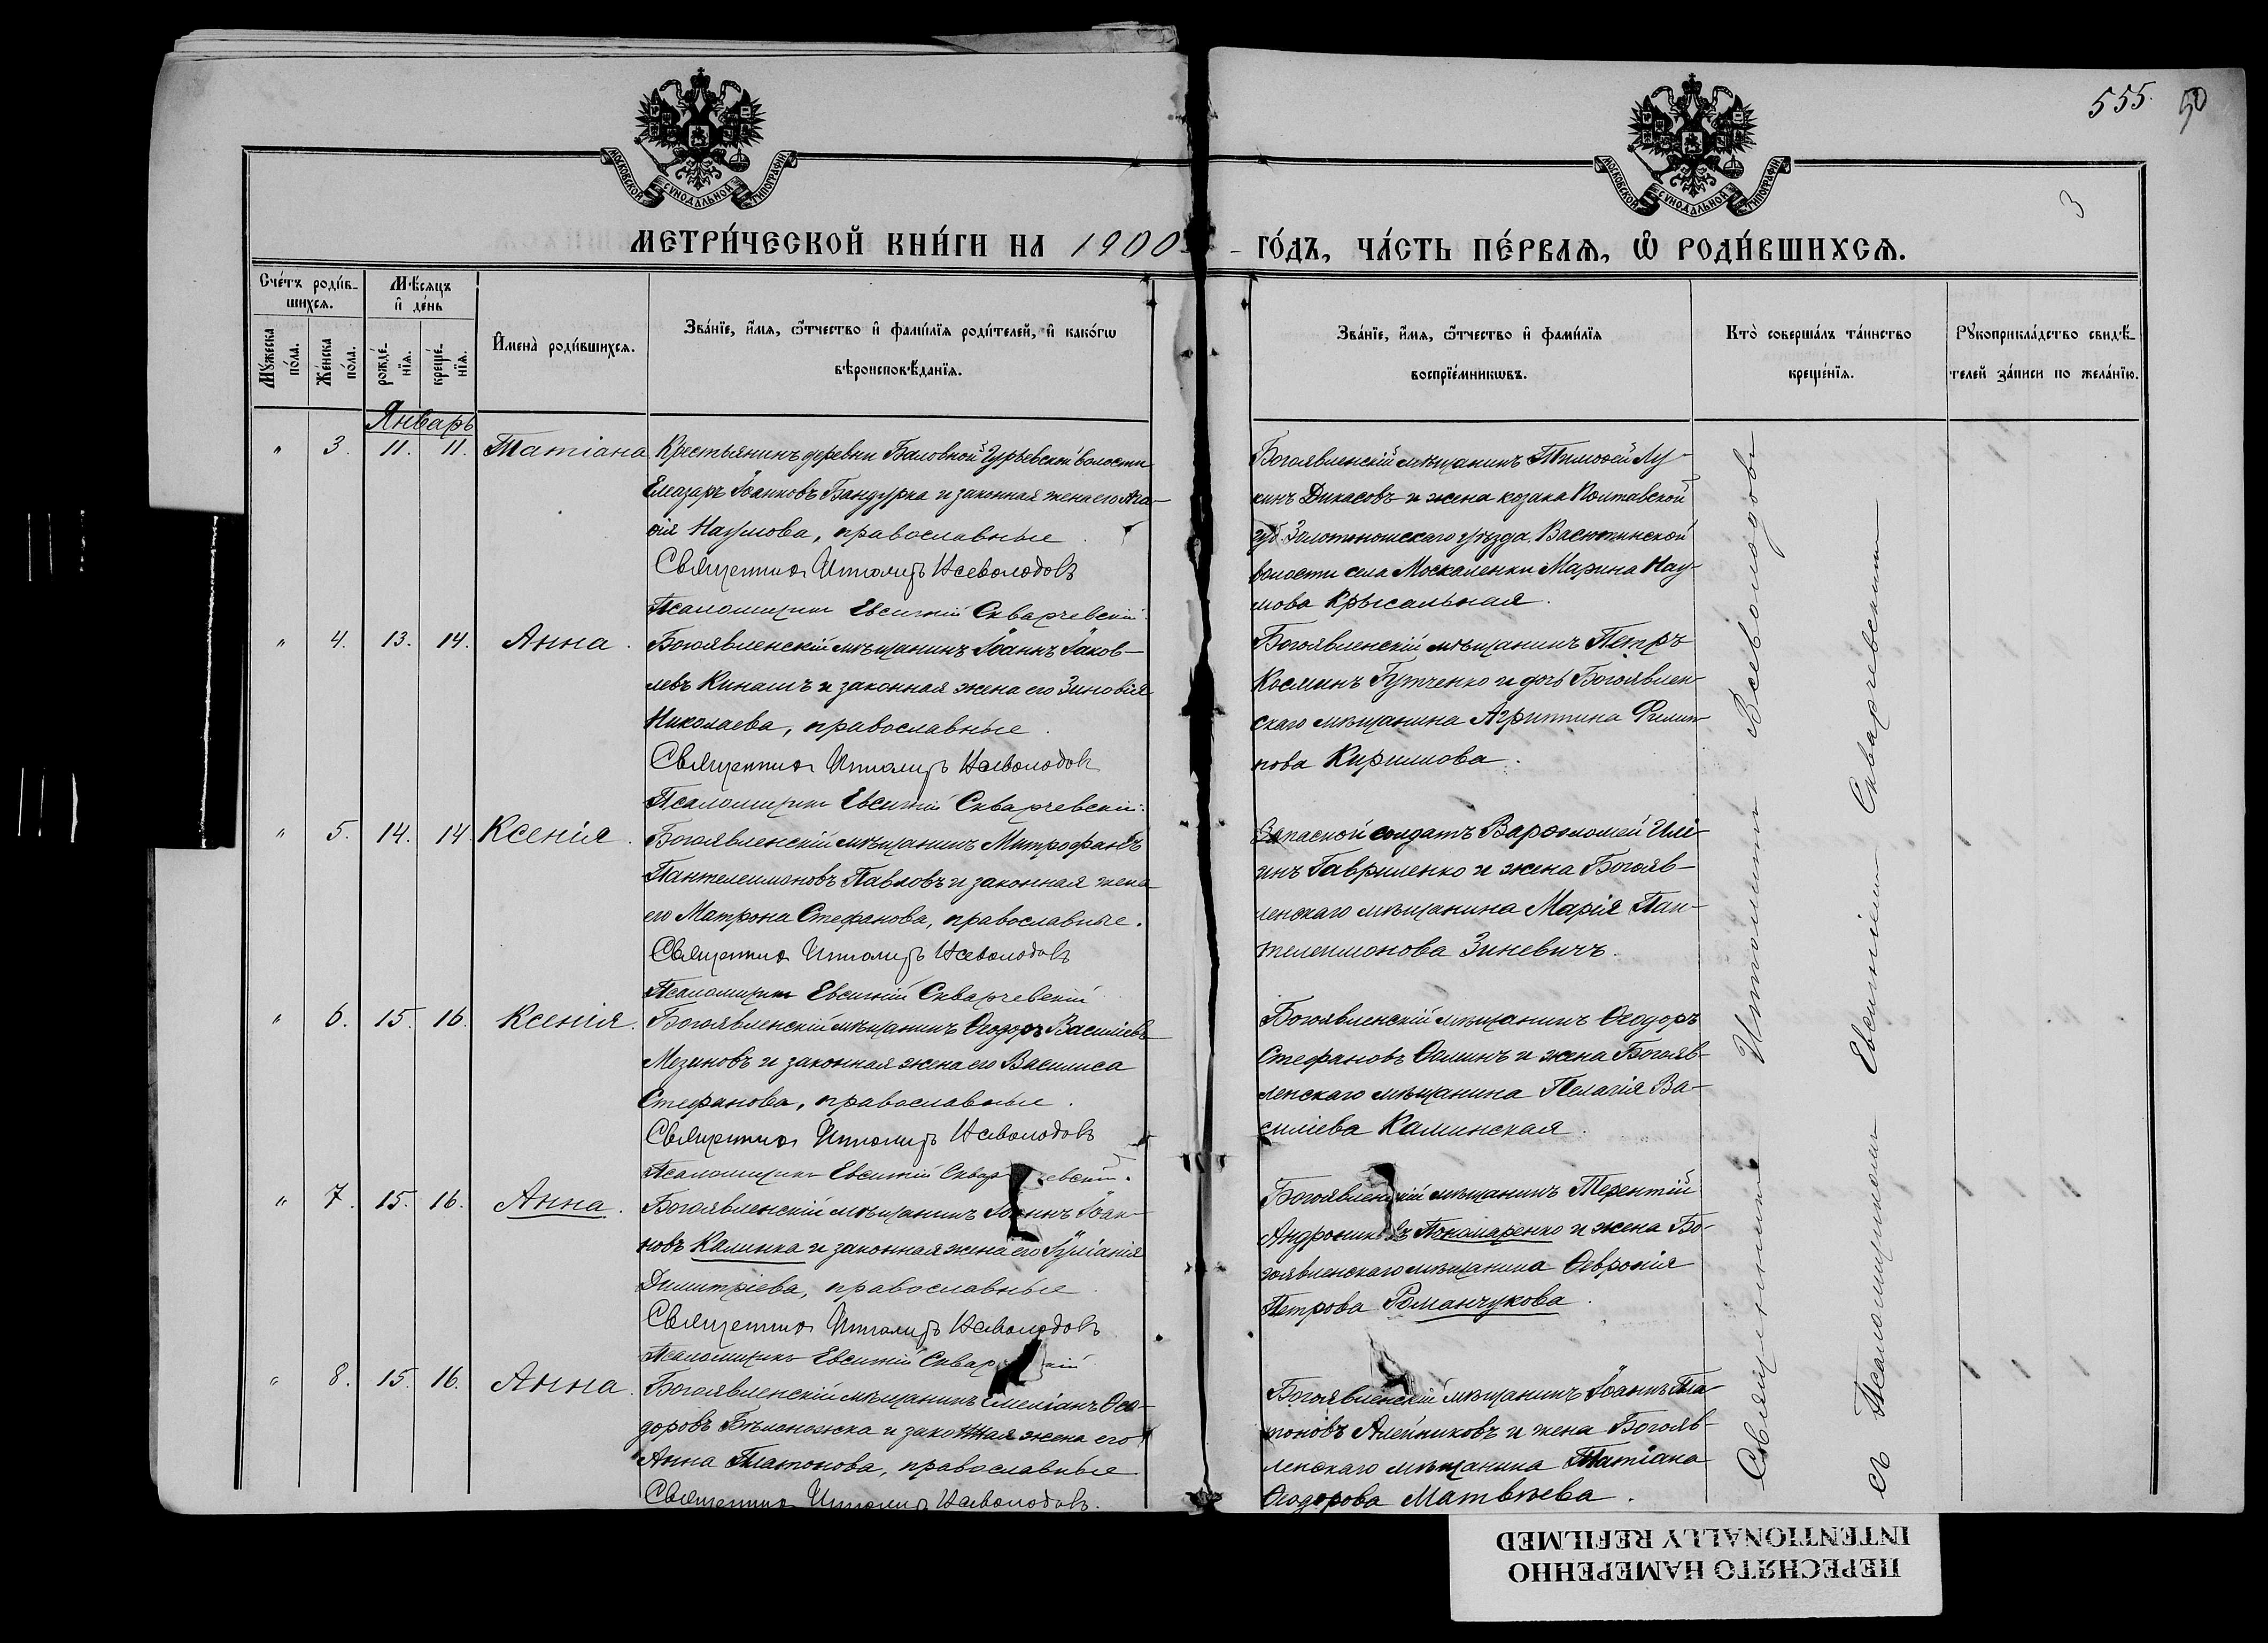 555. 50
3
МОСКОВСКОЙ СѴНОДАЛЬНОЙ ТИПОГРАФІИ
МОСКОВСКОЙ СѴНОДАЛЬНОЙ ТИПОГРАФІИ
МЕТРИ́ЧЕСКОЙ КНИ́ГИ НА 1900 ГО́ДЪ, ЧА́СТЬ ПЕ́РВАѦ, Ѡ҆ РОДИ́ВШИХСѦ.
Сче́тъ роди́в-
шихсѧ.
Мꙋ́жеска по́ла.
Же́нска по́ла.
Мѣ́сѧцъ
и҆ де́нь
рожде́-
нїѧ.
креще́-
нїѧ.
И҆мена̀ роди́вшихсѧ.
Зва́нїе, и҆́мѧ, ѻ҆́тчество и҆ фами́лїѧ роди́телей, и҆ како́гѡ
вѣроисповѣ́данїѧ.
Зва́нїе, и҆́мѧ, ѻ҆́тчество и҆ фами́лїѧ
воспрїе́мникѡвъ.
Кто̀ соверша́лъ та́инство
креще́нїѧ.
Рꙋкоприкла́дство свидѣ́-
телей за́писи по жела́нїю.
Январь
" 3. 11. 11. Татіана
Крестьянинъ деревни Баловной Гурьевской волости
Елеазаръ Іоанновъ Бандурка и законная жена его Ага-
ѳія Наумова, православные.
Священникъ Ипполитъ Всеволодовъ
Псаломщикъ Евсигній Скварчевскій.
Богоявленскій мѣщанинъ Тимоѳей Лу-
кинъ Дикасовъ и жена козака Полтавской
губ. Золотоношскаго уѣзда, Васютинской
волости села Москаленки Марина Нау-
мова Крысальная.
" 4. 13. 14. Анна.
Богоявленскій мѣщанинъ Іоаннъ Іаков-
левъ Кинашъ и законная жена его Зиновія
Николаева, православные.
Священникъ Ипполитъ Всеволодовъ
Псаломщикъ Евсигній Скварчевскій.
Богоявленскій мѣщанинъ Петръ
Косминъ Гутченко и дочь Богоявлен-
скаго мѣщанина Агриппина Филип-
пова Кириллова.
" 5. 14. 14. Ксенія.
Богоявленскій мѣщанинъ Митрофанъ
Пантелеимоновъ Павловъ и законная жена
его Матрона Стефанова, православные.
Священникъ Ипполитъ Всеволодовъ
Псаломщикъ Евсигній Скварчевскій
Запасной солдатъ Варѳоломей Илі-
инъ Гавриленко и жена Богояв-
ленскаго мѣщанина Марія Пан-
телеимонова Зиневичъ.
" 6. 15. 16. Ксенія.
Богоявленскій мѣщанинъ Ѳеодоръ Василіевъ
Мезиновъ и законная жена его Василиса
Стефанова, православные.
Священникъ Ипполитъ Всеволодовъ
Псаломщикъ Евсигній Сквар евскій.
Богоявленскій мѣщанинъ Ѳеодоръ
Стефановъ Ѳоминъ и жена Богояв-
ленскаго мѣщанина Пелагія Ва-
силіева Калинская.
" 7. 15. 16. Анна.
Богоявленскій мѣщанинъ Іоаннъ Іоан-
новъ Калинка и законная жена его Іуліанія
Димитріева, православные.
Священникъ Ипполитъ Всеволодовъ
Псаломщикъ Евсигній Сквар кій
Богоявленскій мѣщанинъ Терентій
Андрониковъ Пономаренко и жена Бо-
гоявленскаго мѣщанина Ѳевронія
Петрова Романчукова.
" 8. 15. 16. Анна.
Богоявленскій мѣщанинъ Емеліанъ Ѳео-
доровъ Бѣлоножка и законная жена его
Анна Платонова, православные
Священникъ Ипполитъ Всеволодовъ.
Богоявленскій мѣщанинъ Іоаннъ Пла-
тоновъ Алейниковъ и жена Богояв-
ленскаго мѣщанина Татіана
Ѳеодорова Матвѣева.
Священникъ Ипполитъ Всеволодовъ
съ Псаломщикомъ Евсигніемъ Скварчевскимъ
ПЕРЕСНЯТО НАМЕРЕННО
INTENTIONALLY REFILMED